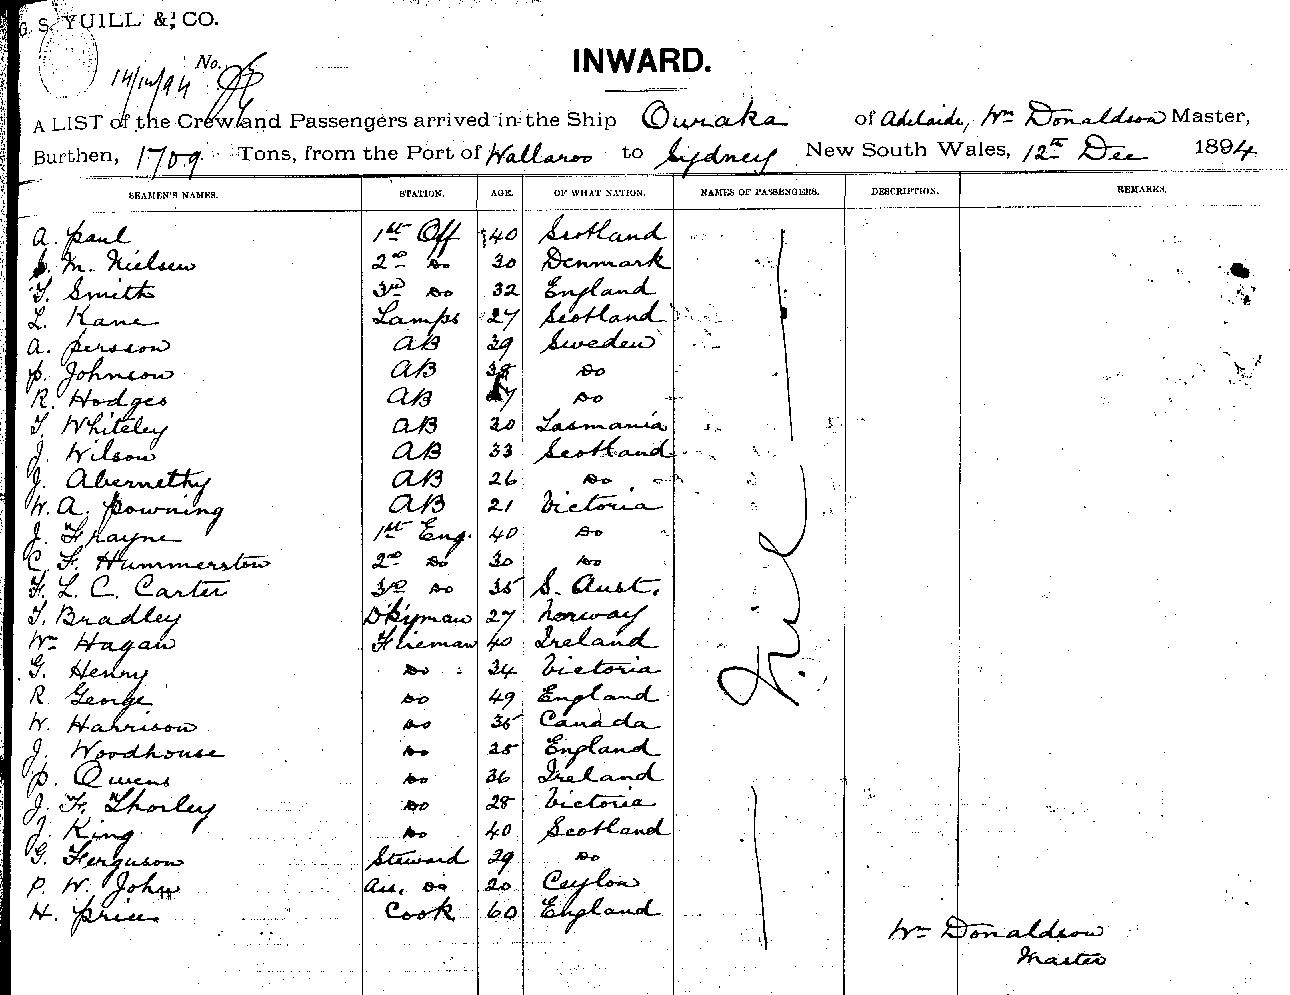 G. S. YUILL & CO.
No.
14/12/94
INWARD.
A LIST of the Crew and Passengers arrived in the Ship Ouraka of Adelaide, Wm Donaldson Master,
Burthen, 1709 Tons, from the Port of Wallaroo to Sydney New South Wales, 12th Dec 1894
SEAMEN'S NAMES. STATION. AGE. OF WHAT NATION. NAMES OF PASSENGERS. DESCRIPTION. REMARKS.
A. Paul 1st Off 40 Scotland
M. Nielsen 2nd Do 30 Denmark
T. Smith 3rd Do 32 England
L. Kane Lamps 27 Scotland
A. Persson AB 39 Sweden
P. Johnson AB Do
R. Hodges AB Do
T. Whiteley AB 30 Tasmania
J. Wilson AB 33 Scotland
J. Abernethy AB 26 Do
W. A. Powning AB 21 Victoria
J. Frayne 1st Eng. 40 Do
C. F. Hummerston 2nd Do 30 Do
F. L. C. Carter 3rd Do 35 S. Aust.
T. Bradley D'kyman 27 Norway
Wm Hagan Fireman 40 Ireland
G. Henry Do 34 Victoria
R. George Do 49 England
W. Harrison Do 35 Canada
J. Woodhouse Do 25 England
P. Owens Do 36 Ireland
J. F. Thorley Do 28 Victoria
J. King Do 40 Scotland
G. Ferguson Steward 29 Do
P. W. John Ass. Do 20 Ceylon
H. Price Cook 60 England
Nil
Wm Donaldson
Master